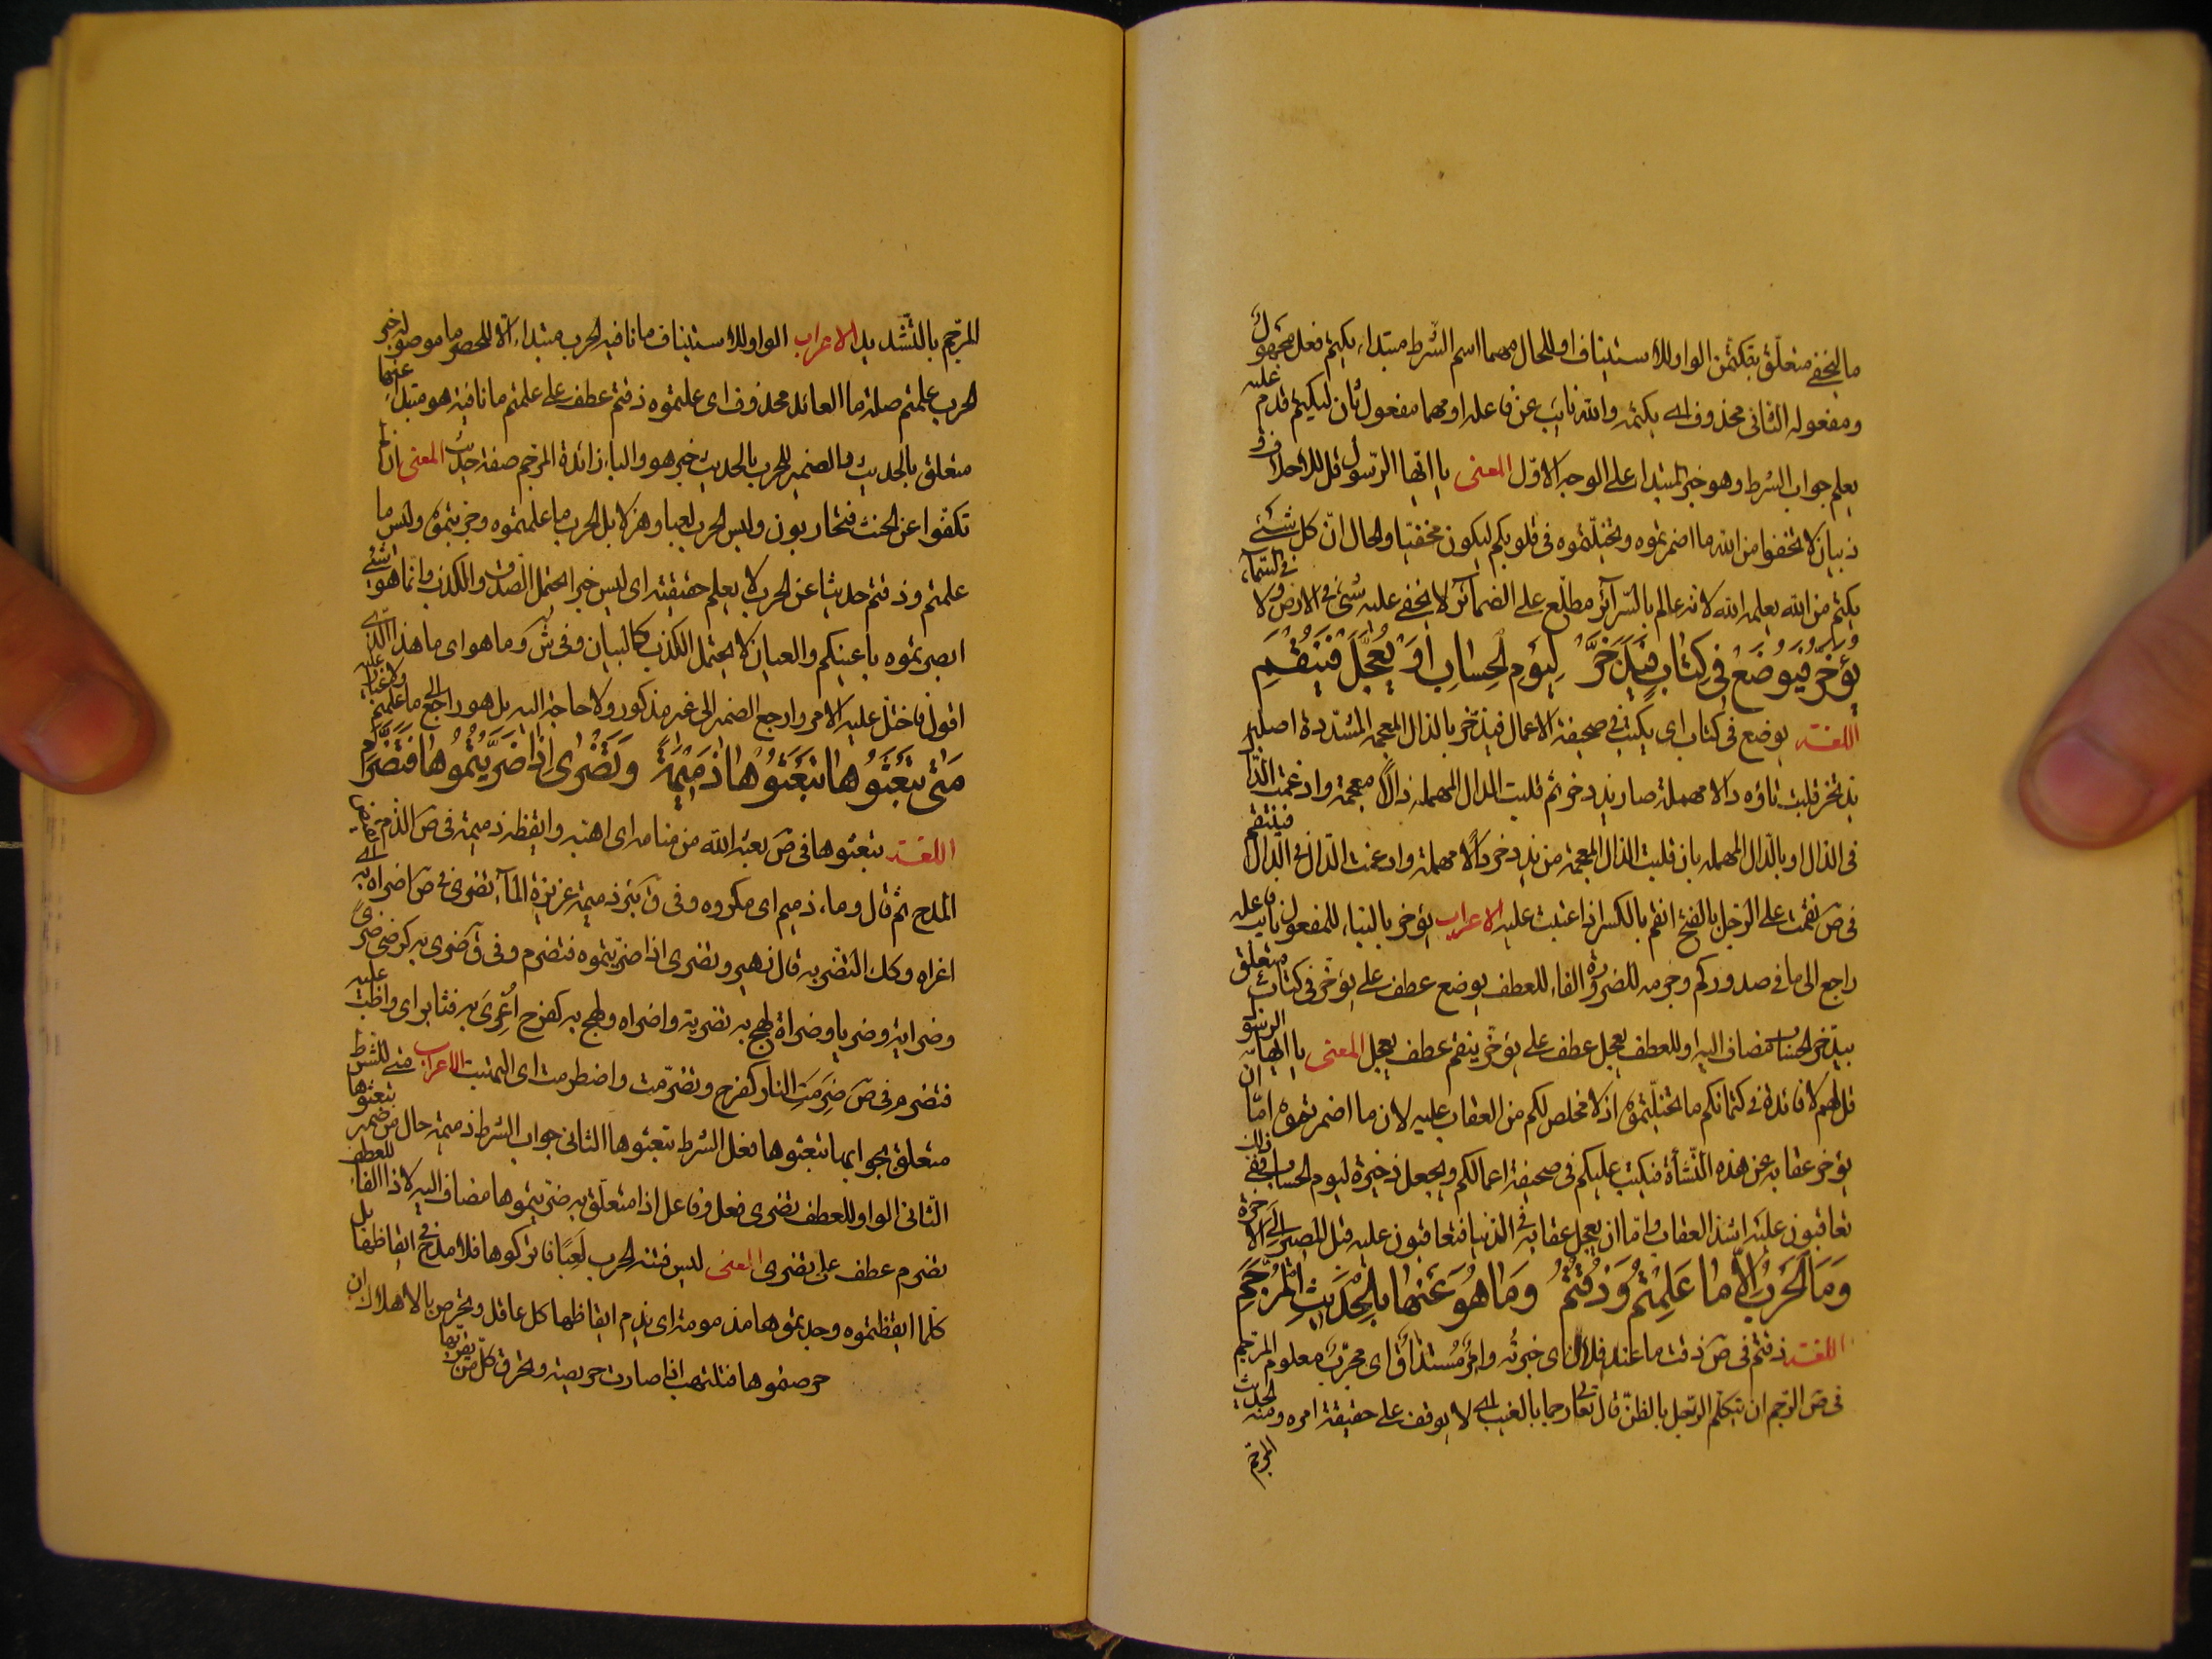 ما ليخفى متعلّق بتكتمن الواو للاستيناف او للحال مهما اسم الشرط مبتداء يكتم فعل مجهول
ومفعوله الثانى محذوف اى يكتمه والله نايب عن فاعله او مهما مفعول ثان ليكتم قدم عليه
يعلم جواب الشرط وهو خبر المبتداء على الوجه الاول المعنى يا ايّها الرسول قل للاحلاف و
ذبيان لا تخفوا من الله ما اضمرتموه وتخيّلتموه فى قلوبكم ليكون مخفيّا والحال انّ كل شئ
يكتم من الله يعلمه الله لانه عالم بالسرآئر مطلّع على الضمائر لا يخفى عليه شئ فى الارض ولا فى السّمآء
يُؤَخَّرْ فَيُوضَعْ فِى كِتَابٍ فَيُدَّخَرْ لِيَوْمِ الْحِسَابِ اَوْ يُعَجَّلْ فَيُنْقَمِ
اللغة يوضع فى كتاب اى يكتب فى صحيفة الاعمال فيذّخر بالذال المعجمة المشدّدة اصله
يذتخر قلبت تاؤه دالا مهملة صار يذدخر ثم قلبت الدال المهملة ذالا معجمة وادغمت الذال
فى الذال او بالدّال المهملة بان قلبت الذال المعجمة من يذدخر دالا مهملة وادغمت الدال فى الدال فينتقم
فى ص نقمت على الرجل بالفتح انقم بالكسر اذا عتبت عليه الاعراب يؤخر بالبناء للمفعول نايب فاعله
راجع الى ما فى صدوركم وجزمه للضرورة الفاء للعطف يوضع عطف على يؤخّر فى كتاب متعلق
بيدّخر الحساب مضاف اليه او للعطف يعجل عطف على يؤخّر ينقم عطف يعجل المعنى يا ايها الرسول
قل لهم لا فائدة فى كتمانكم ما تخيّلتموه اذ لا مخلص لكم من العقاب عليه لان ما اضمرتموه امّا ان
يؤخر عقابه عن هذه النّشأة فيكتب عليكم فى صحيفة اعمالكم ويجعل ذخيرة ليوم الحساب ففى ذلك
تعاقبون عليه اشد العقاب وامّا ان يعجل عقابه فى الدّنيا فتعاقبون عليه قبل المصير الى الاخرة
وَمَا الْحَرْبُ اِلَّا مَا عَلِمْتُمْ وَذُقْتُمْ وَمَا هُوَ عَنْهَا بِالْحَدِيثِ الْمُرَجَّمِ
اللغة ذقتم فى ص ذقت ما عند فلان اى خبرته وامر مستذاق اى مجرّب معلوم المرجّم
فى ص الرجم ان يتكلّم الرّجل بالظنّ قال تعا رجما بالغيب اى لا يوقف على حقيقة امره ومنه الحديث
المرجّم
المرجّم بالتّشديد الاعراب الواو للاستيناف ما نافيه الحرب مبتداء الّا للحصر ما موصوله خبر
الحرب علمتم صلة ما العائد محذوف اى علمتموه ذقتم عطف على علمتم ما نافية هو مبتداء عنها
متعلق بالحديث والضمير للحرب بالحديث خبر هو والباء زائدة المرجم صفة حديث المعنى ان لم
تكفّوا عن الحنث فتحاربون وليس الحرب لعبا وهزلا بل الحرب ما علمتموه وجرّبتموه وليس ما
علمتم وذقتم حديثا عن الحرب لا يعلم حقيقته اى ليس خبرا احتمل الصّدق والكذب وانّما هو شئ
ابصرتموه باعينكم والعيان لا يحتمل الكذب كالبيان وفى ش وما هو اى ما هذا الذى
اقول فاختل عليه الامر وارجع الضمير الى غير مذكور ولا حاجة اليه بل هو راجع الى ما علمتم ولا غبار عليه
مَتَى تَبْعَثُوهَا تَبْعَثُوهَا ذَمِيمَةً وَتَضْرَى اِذَا ضَرَّيْتُمُوهَا فَتَضْرَمِ
اللغة تبعثوها فى ص بعثه الله من منامه اى اهبّه وايقظه ذميمة فى ص الذم نقيض
المدح ثم قال وماء ذميم اى مكروه وفى ق بئر ذميمة غزيرة المآء تضرى فى ص اضراه به اى
اغراه وكذلك التضرية قال زهير وتضرى اذا ضرّيتموه فتضرم وفى ق ضرى به كرضى ضرىً
وضراية وضريا وضراة لهج به تضرية واضراه ولهج به كفرح اُغْرِىَ به فثابر اى واظب عليه
فتضرم فى ص ضَرِمَتِ النار كفرح وتضرّمت واضطرمت اى التهبت الاعراب متى للشرط
متعلق بجوابها تبعثوها فعل الشرط تبعثوها الثانى جواب الشرط ذميمة حال من ضمير تبعثوها
الثانى الواو للعطف تضرى فعل وفاعل اذا متعلّق به ضرّيتموها مضاف اليه لاذا الفاء للعطف
تضرم عطف على تضرى المعنى ليس فتنة الحرب لَعِبًا فاتركوها فلا مدح فى ايقاظها بل
كلّما ايقظتموه وجدتموها مذمومة اى يذم ايقاظها كل عاقل وتحرص بالاهلاك ان
حرصتموها فتلتهب اذا صارت حريصة وتحرق كلّ من يقربها